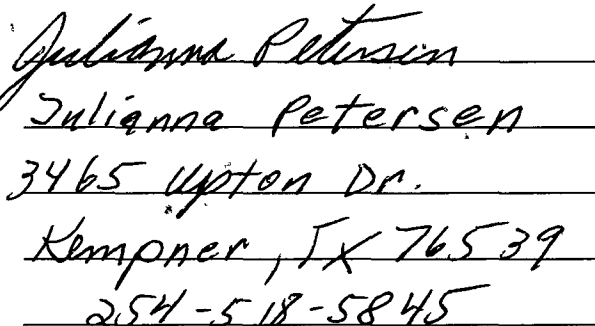 Julianna Petersen
Julianna Petersen
3465 Upton Dr.
Kempner, TX 76539
254-518-5845